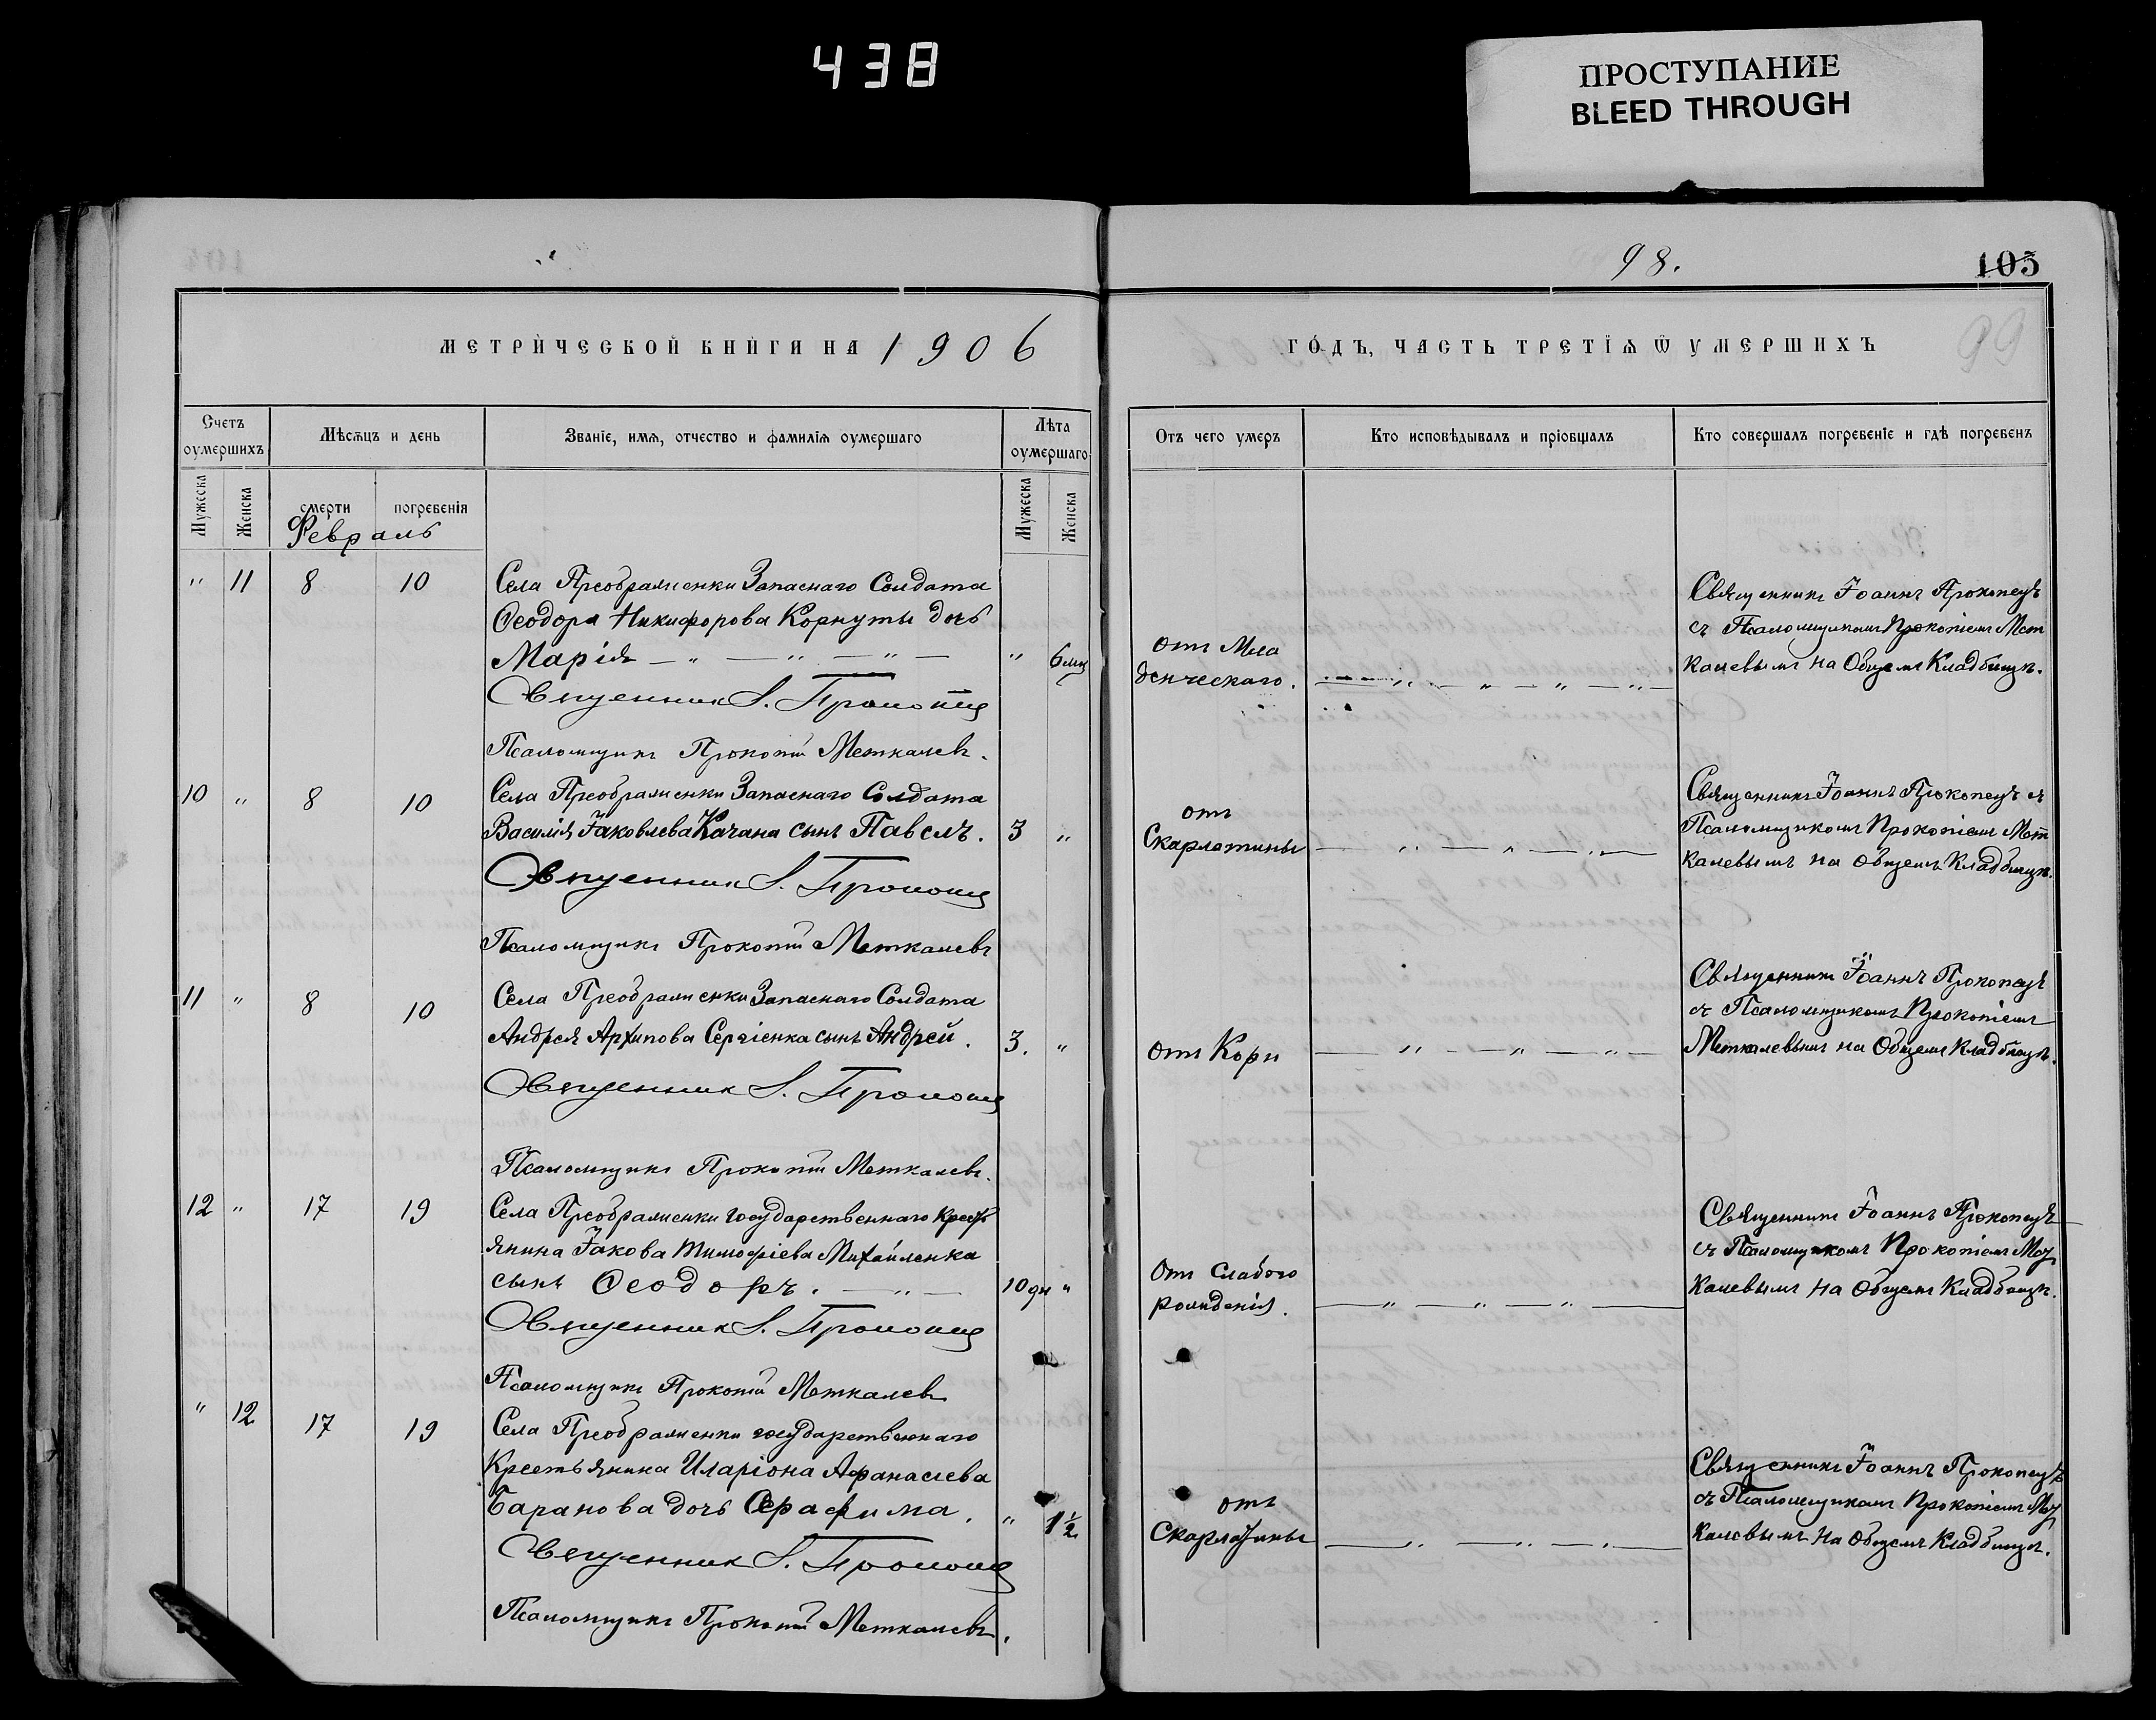 438
ПРОСТУПАНИЕ
BLEED THROUGH
98.
105
99
МЕТРИЧЕСКОЙ КНИГИ НА 1906
ГОДЪ, ЧАСТЬ ТРЕТІЯ Ѿ УМЕРШИХЪ
Счетъ оумершихъ
Мѣсяцъ и день
Званіе, имя, отчество и фамилія оумершаго
Лѣта оумершаго
Отъ чего умеръ
Кто исповѣдывалъ и пріобщалъ
Кто совершалъ погребеніе и гдѣ погребенъ
Мужеска
Женска
смерти
погребенія
Мужеска
Женска
Февраль
" 11 8 10
Села Преображенки Запаснаго Солдата
Ѳеодора Никифорова Корнуты дочь
Марія — " — " — " —
" 6 мц
Священникъ І. Прокопецъ
Псаломщикъ Прокопій Меткалевъ.
отъ Мла
денческаго.
Священникъ Іоаннъ Прокопецъ
съ Псаломщикомъ Прокопіемъ Мет
калевымъ на Общемъ Кладбищѣ.
10 " 8 10
Села Преображенки Запаснаго Солдата
Василія Іаковлева Качана сынъ Павелъ.
3 "
Священникъ І. Прокопецъ
Псаломщикъ Прокопій Меткалевъ
отъ
Скарлатины
Священникъ Іоаннъ Прокопецъ съ
Псаломщикомъ Прокопіемъ Мет
калевымъ на Общемъ Кладбищѣ.
11 " 8 10
Села Преображенки Запаснаго Солдата
Андрея Архипова Сергіенка сынъ Андрей.
3. "
Священникъ І. Прокопецъ
Псаломщикъ Прокопій Меткалевъ.
отъ Кори
Священникъ Іоаннъ Прокопецъ
съ Псаломщикомъ Прокопіемъ
Меткалевымъ на Общемъ Кладбищѣ.
12 " 17 19
Села Преображенки государственнаго Крест
янина Іакова Тимофіева Михайленка
сынъ Ѳеодоръ. — " —
10 дн "
Священникъ І. Прокопецъ
Псаломщикъ Прокопій Меткалевъ
Отъ Слабого
рожденія.
Священникъ Іоаннъ Прокопецъ
съ Псаломщикомъ Прокопіемъ Мет
калевымъ на Общемъ Кладбищѣ.
" 12 17 19
Села Преображенки государственнаго
Крестьянина Иларіона Афанасіева
Баранова дочь Серафима.
" 1½
Священникъ І. Прокопецъ
Псаломщикъ Прокопій Меткалевъ.
отъ
Скарлатины
Священникъ Іоаннъ Прокопецъ
съ Псаломщикомъ Прокопіемъ Мет
калевымъ на Общемъ Кладбищѣ.